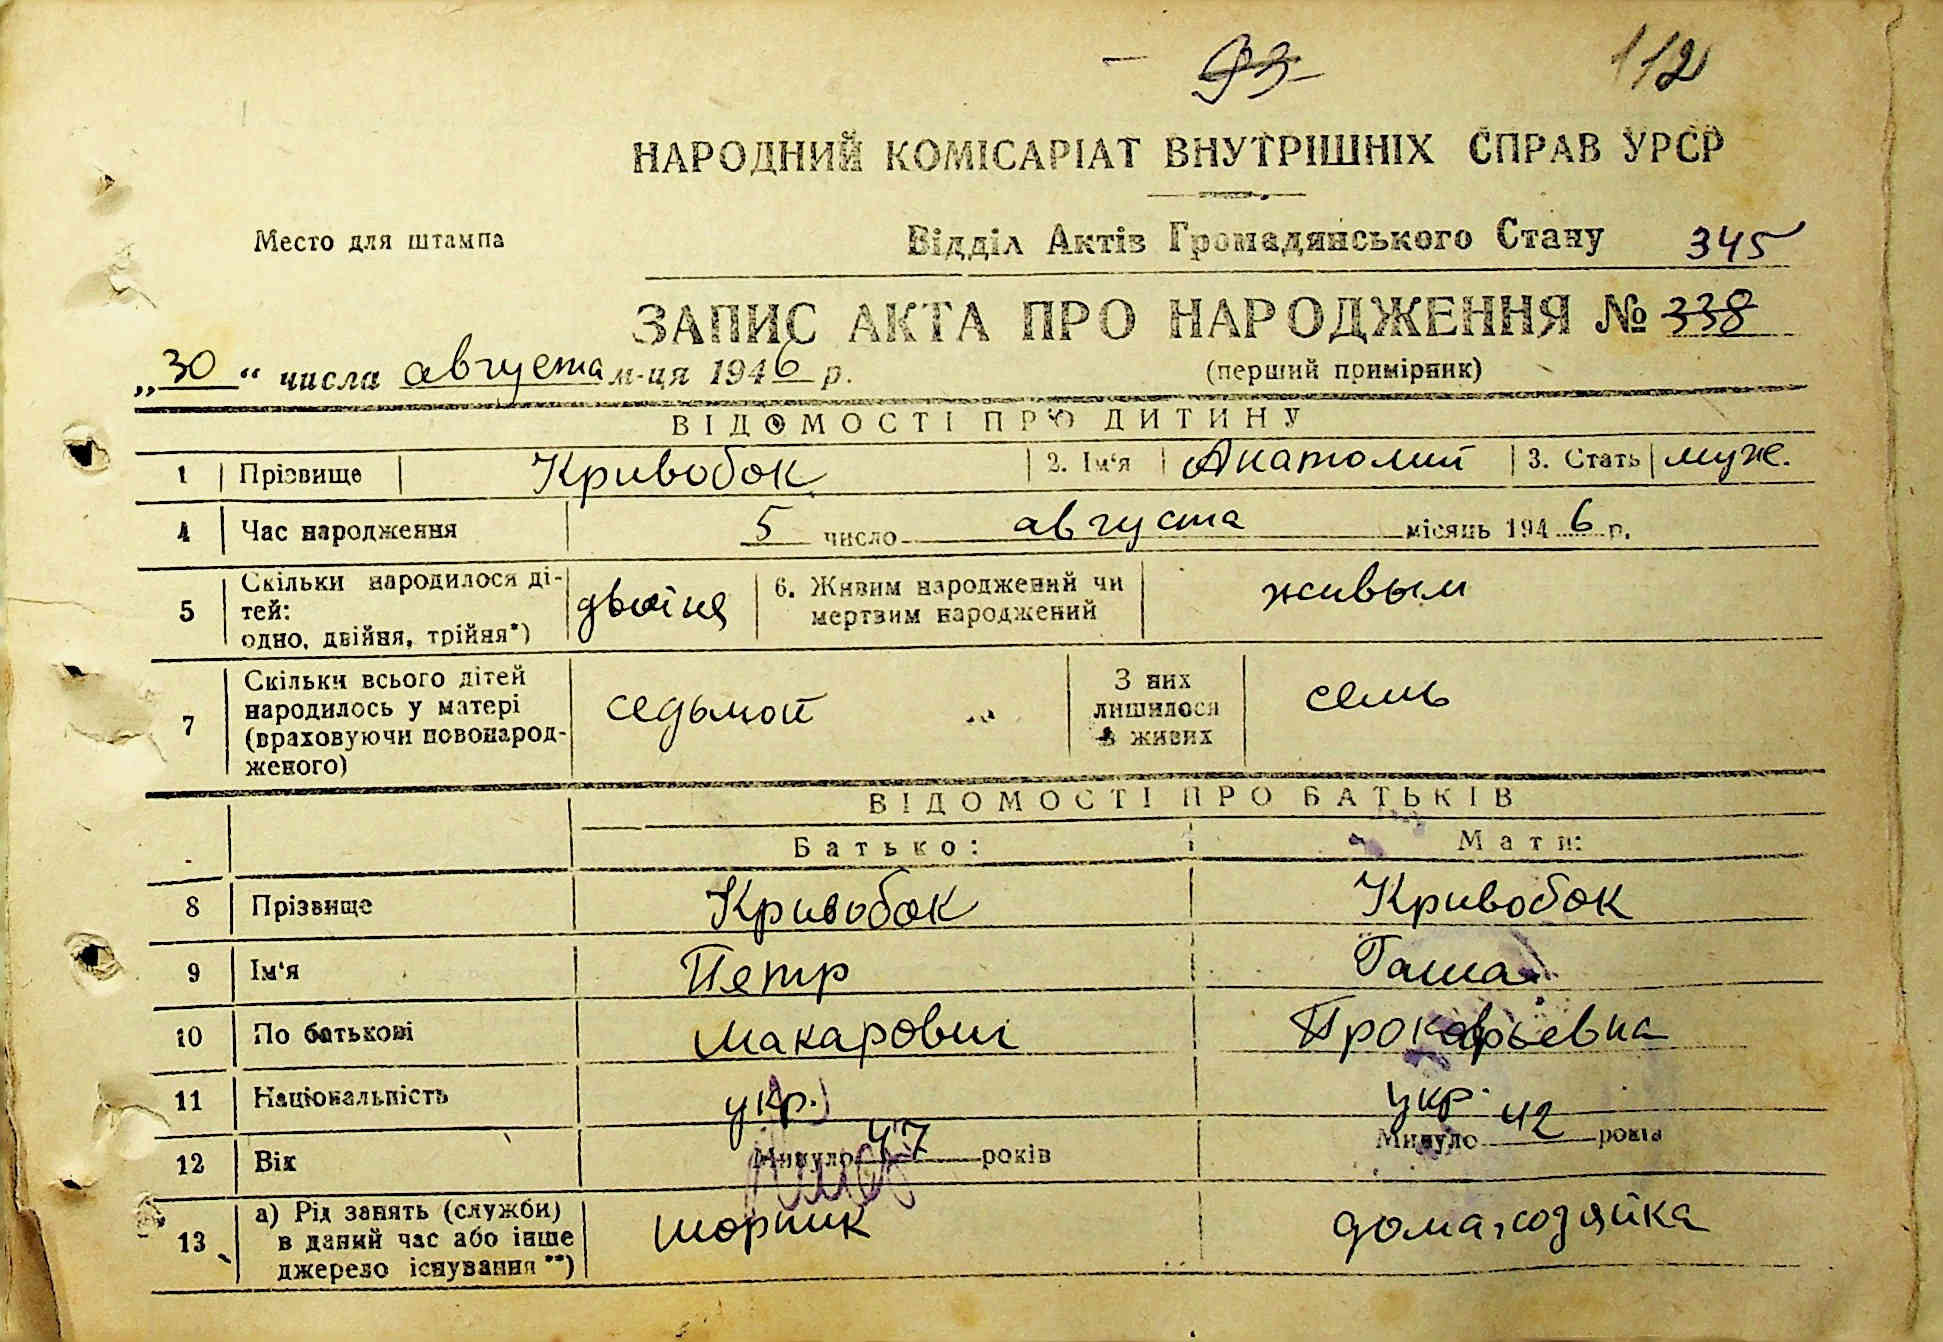 93
112
НАРОДНИЙ КОМІСАРІАТ ВНУТРІШНІХ СПРАВ УРСР
Место для штампа
Відділ Актів Громадянського Стану 345
ЗАПИС АКТА ПРО НАРОДЖЕННЯ № 338
„30“ числа августа м-ця 1946 р.
(перший примірник)
ВІДОМОСТІ ПРО ДИТИНУ
1 Прізвище Кривобок 2. Ім'я Анатолий 3. Стать муж.
4 Час народження 5 число августа місяць 1946 р.
5 Скільки народилося ді-
тей:
одно, двійня, трійня*) двойня 6. Живим народжений чи
мертвим народжений живым
7 Скільки всього дітей
народилось у матері
(враховуючи новонарод-
женого) седьмой З них
лишилося
в живих семь
ВІДОМОСТІ ПРО БАТЬКІВ
Батько: Мати:
8 Прізвище Кривобок Кривобок
9 Ім'я Петр Гаша
10 По батькові Макарович
11 Національність укр. укр.
12 Вік Минуло 47 років Минуло 42 років
13 а) Рід занять (служби)
в даний час або інше
джерело існування**) шорник домахозяйка